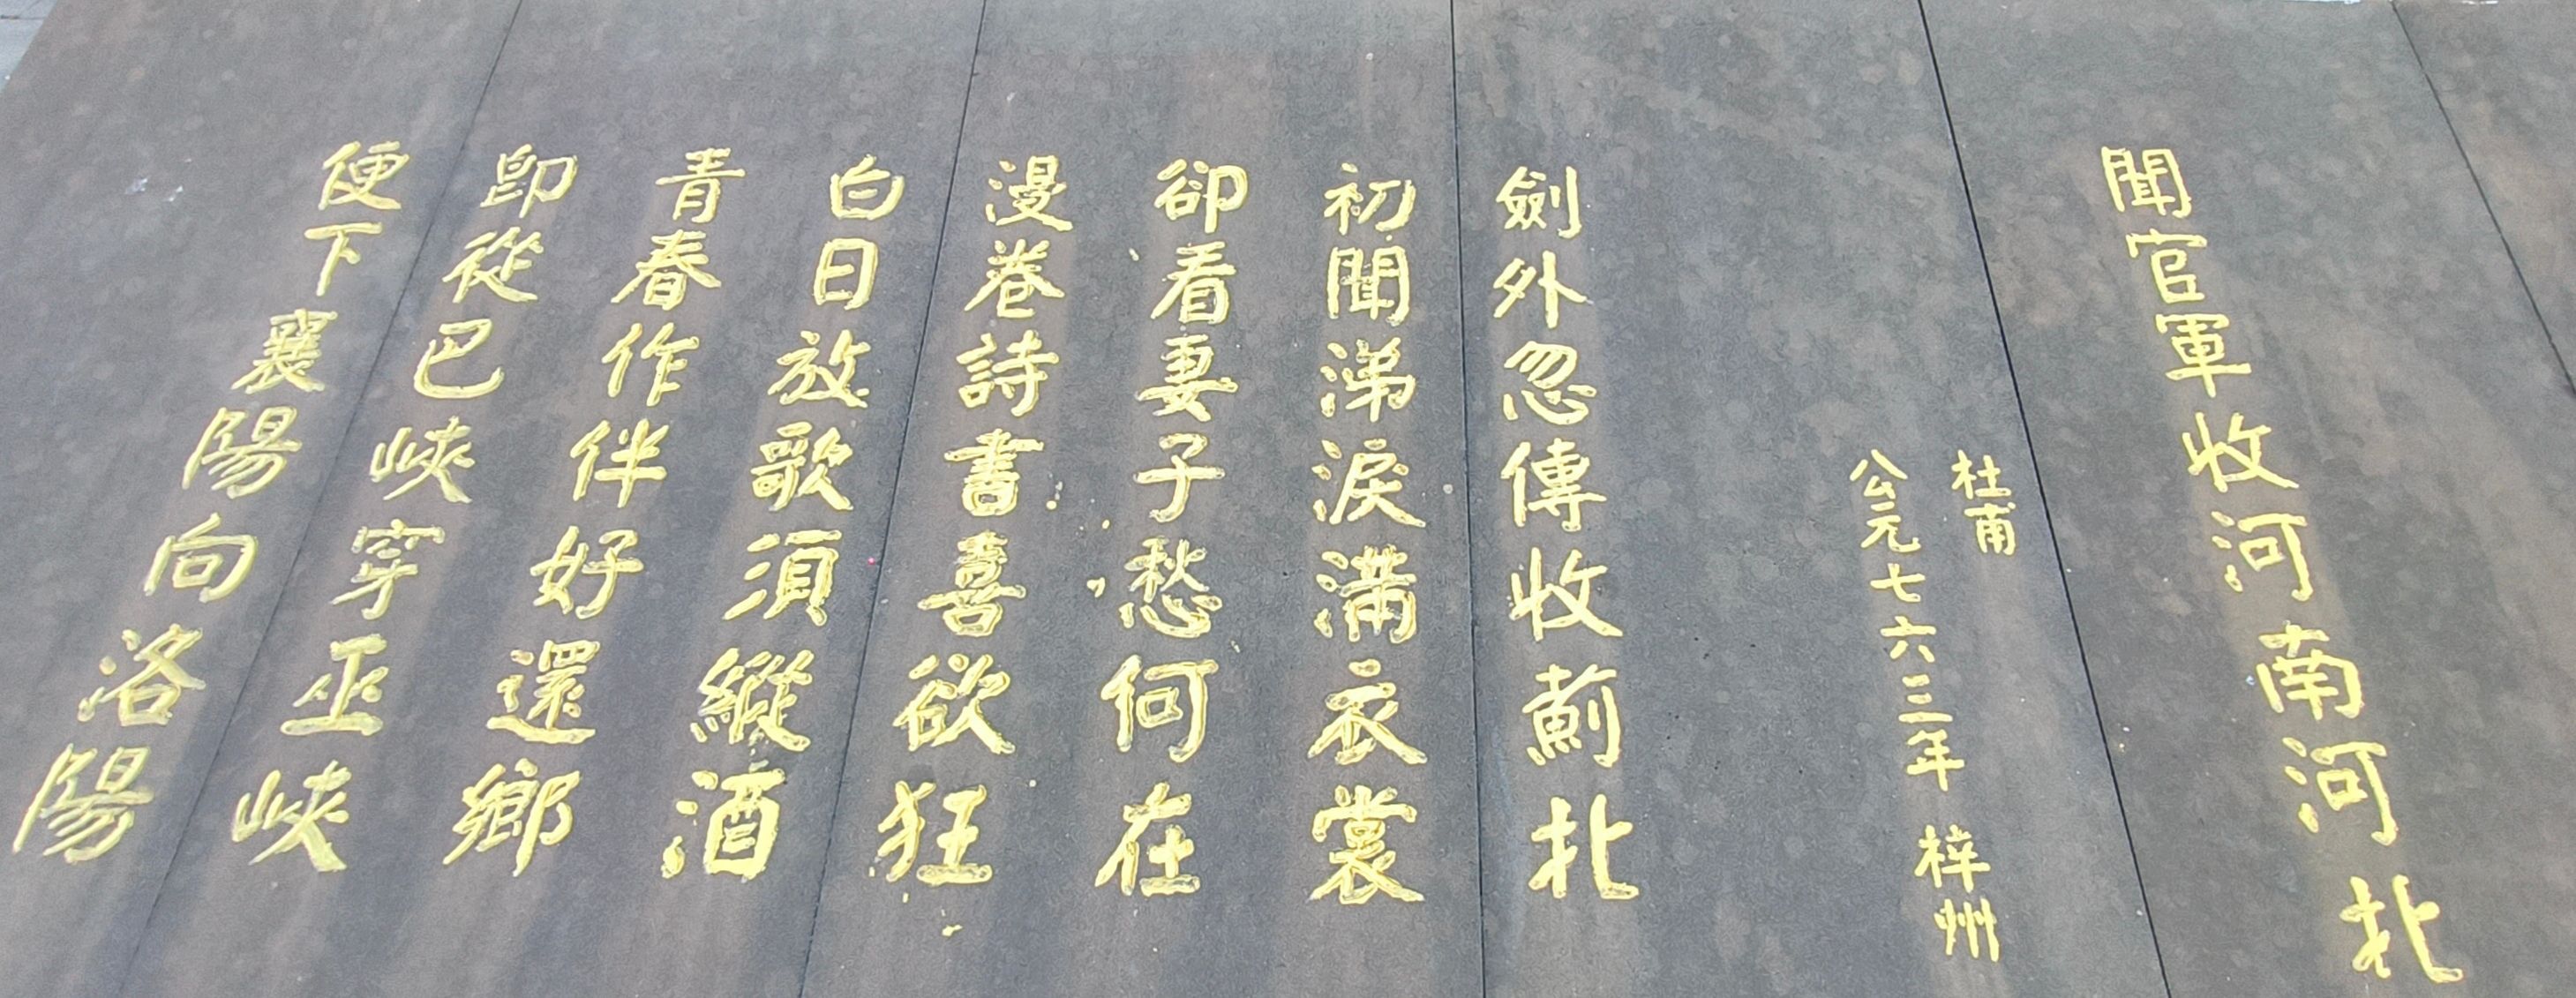 聞官軍收河南河北
杜甫
公元七六三年 梓州
劍外忽傳收薊北
初聞涕淚滿衣裳
卻看妻子愁何在
漫卷詩書喜欲狂
白日放歌須縱酒
青春作伴好還鄉
即從巴峽穿巫峽
便下襄陽向洛陽